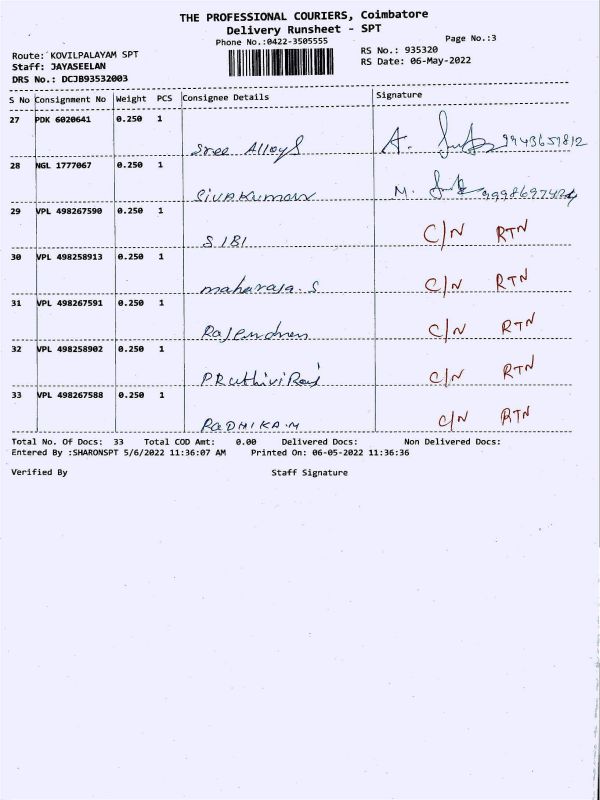 THE PROFESSIONAL COURIERS, Coimbatore
Delivery Runsheet - SPT
Phone No.:0422-3505555
Page No.:3
Route: KOVILPALAYAM SPT
RS No.: 935320
Staff: JAYASEELAN
RS Date: 06-May-2022
DRS No.: DCJB93532003
S No Consignment No Weight PCS Consignee Details Signature
27 PDK 6020641 0.250 1
Sree Alloys A. 9943651812
28 NGL 1777067 0.250 1
Sivakumar M.
29 VPL 498267590 0.250 1
SIBI C/N RTN
30 VPL 498258913 0.250 1
maharaja.S C/N RTN
31 VPL 498267591 0.250 1
Rajendren C/N RTN
32 VPL 498258902 0.250 1
PRuthivi Raj C/N RTN
33 VPL 498267588 0.250 1
RADHIKA.M C/N RTN
Total No. Of Docs: 33 Total COD Amt: 0.00 Delivered Docs: Non Delivered Docs:
Entered By :SHARONSPT 5/6/2022 11:36:07 AM Printed On: 06-05-2022 11:36:36
Verified By Staff Signature